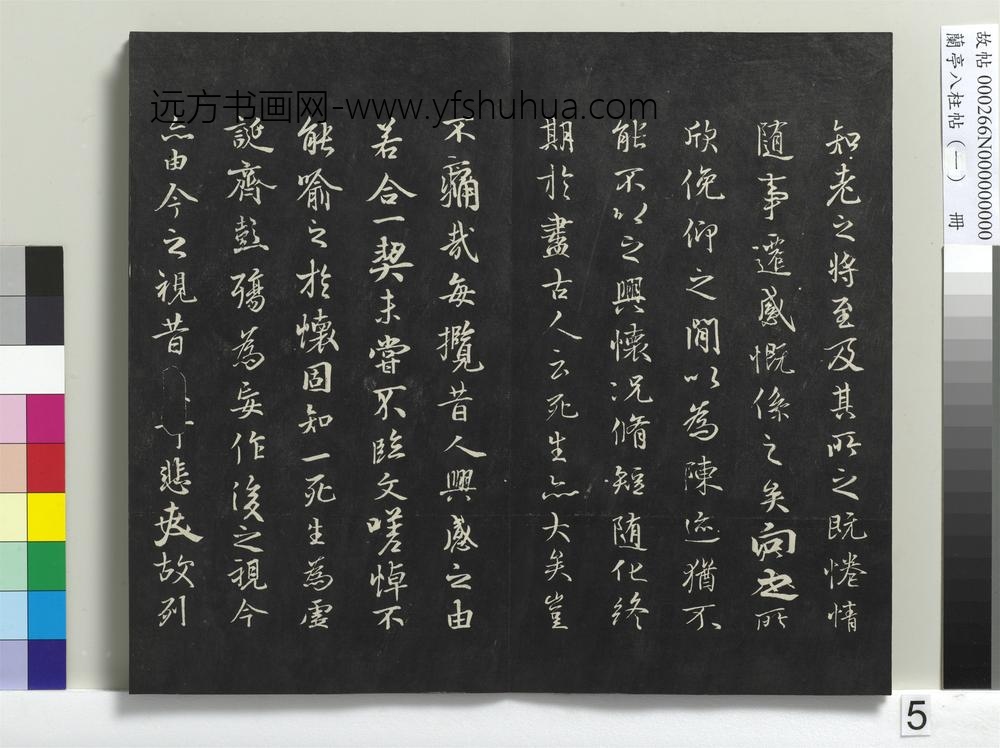 远方书画网-www.yfshuhua.com
故帖 000266N000000000
蘭亭八柱帖(一) 冊
知老之将至及其所之既惓情
随事遷感慨係之矣向之所
欣俛仰之閒以為陳迹猶不
能不以之興懷况脩短随化終
期於盡古人云死生亦大矣豈
不痛哉每攬昔人興感之由
若合一契未嘗不臨文嗟悼不
能喻之於懷固知一死生為虛
誕齊彭殤為妄作後之視今
亦由今之視昔悲夫故列
5